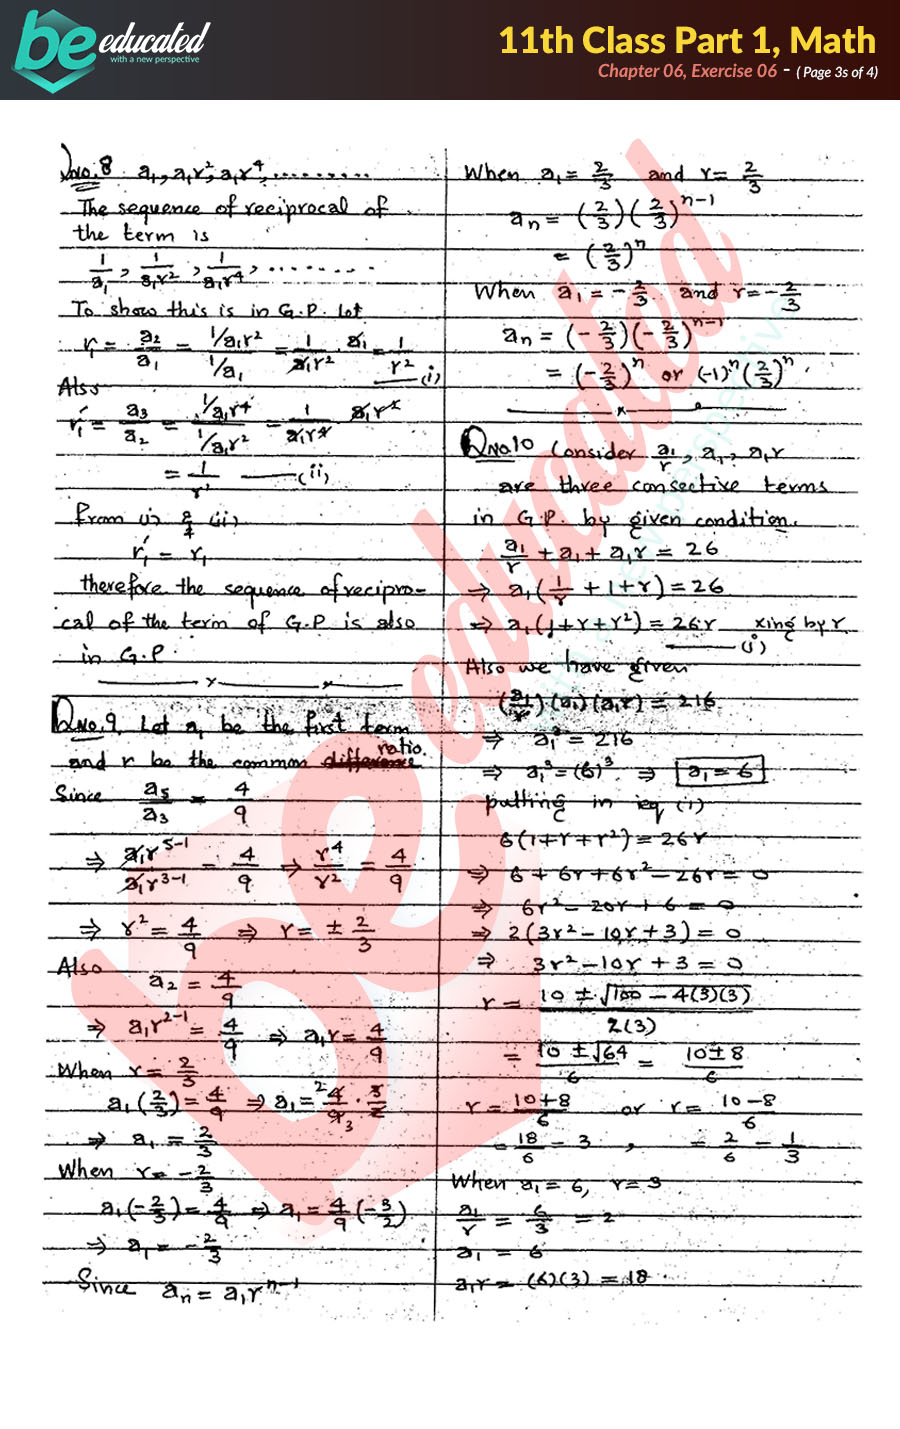 be educated
with a new perspective
11th Class Part 1, Math
Chapter 06, Exercise 06 - ( Page 3s of 4)
QNO.8 a₁, a₁r², a₁r⁴, ..........
The sequence of reciprocal of
the term is
1/a₁, 1/a₁r², 1/a₁r⁴, ........
To show this is in G.P. Let
r₁ = a₂/a₁ = (1/a₁r²)/(1/a₁) = 1/a₁r² · a₁ = 1/r² —(i)
Also
r₁′ = a₃/a₂ = (1/a₁r⁴)/(1/a₁r²) = 1/a₁r⁴ a₁r²
= 1/r² —(ii)
From (i) & (ii)
r₁′ = r₁
therefore the sequence of recipro-
cal of the term of G.P is also
in G.P.
QNO.9 Let a₁ be the first term
and r be the common difference ratio.
Since a₅/a₃ = 4/9
⇒ a₁r⁵⁻¹/a₁r³⁻¹ = 4/9 ⇒ r⁴/r² = 4/9
⇒ r² = 4/9 ⇒ r = ± 2/3
Also
a₂ = 4/9
⇒ a₁r²⁻¹ = 4/9 ⇒ a₁r = 4/9
When r = 2/3
a₁(2/3) = 4/9 ⇒ a₁ = 4/9 · 3/2
⇒ a₁ = 2/3
When r = -2/3
a₁(-2/3) = 4/9 ⇒ a₁ = 4/9(-3/2)
⇒ a₁ = -2/3
Since aₙ = a₁rⁿ⁻¹
When a₁ = 2/3 and r = 2/3
aₙ = (2/3)(2/3)ⁿ⁻¹
= (2/3)ⁿ
When a₁ = -2/3 and r = -2/3
aₙ = (-2/3)(-2/3)ⁿ⁻¹
= (-2/3)ⁿ or (-1)ⁿ(2/3)ⁿ.
QNO.10 Consider a₁/r, a₁, a₁r
are three consective terms
in G.P. by given condition.
a₁/r + a₁ + a₁r = 26
⇒ a₁(1/r + 1 + r) = 26
⇒ a₁(1+r+r²) = 26r xing by r
—(i)
Also we have given
(a₁/r)(a₁)(a₁r) = 216
⇒ a₁³ = 216
⇒ a₁³ = (6)³ ⇒ a₁ = 6
putting in eq (i)
6(1+r+r²) = 26r
⇒ 6 + 6r + 6r² - 26r = 0
⇒ 6r² - 20r + 6 = 0
⇒ 2(3r² - 10r + 3) = 0
⇒ 3r² - 10r + 3 = 0
r = (10 ± √(100 - 4(3)(3)))/2(3)
= (10 ± √64)/6 = (10 ± 8)/6
r = (10+8)/6 or r = (10-8)/6
= 18/6 = 3 , = 2/6 = 1/3
When a₁ = 6, r = 3
a₁/r = 6/3 = 2
a₁ = 6
a₁r = (6)(3) = 18